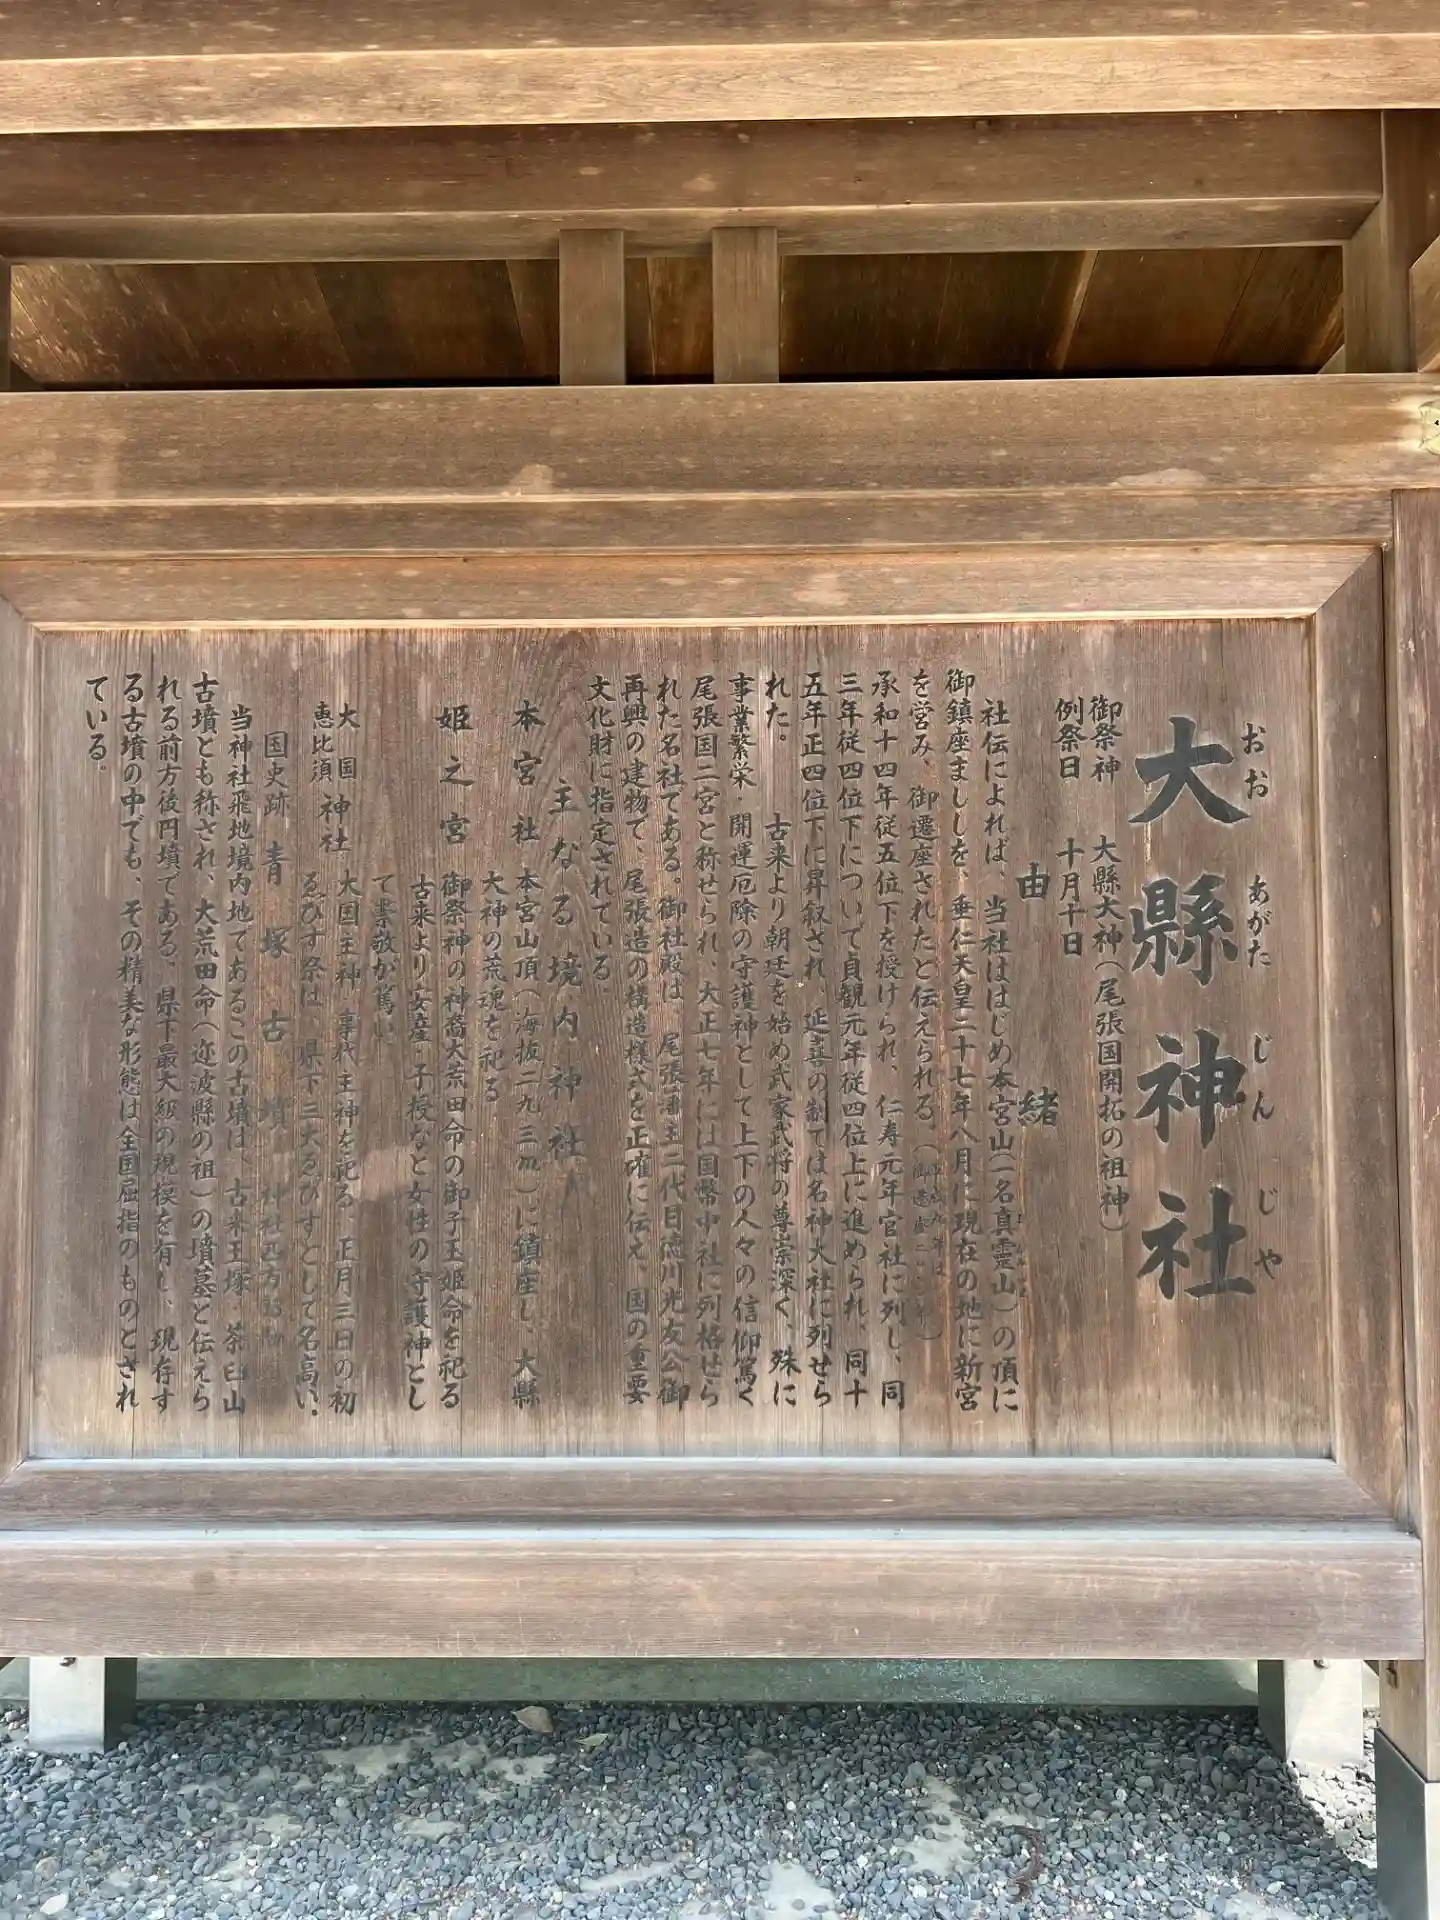 大縣神社
おお あがた じん じゃ
御祭神 大縣大神(尾張国開拓の祖神)
例祭日 十月十日
由緒
社伝によれば、当社ははじめ本宮山(一名真霊山)の頂に
御鎮座ましましを、垂仁天皇二十七年八月に現在の地に新宮
を営み、御遷座されたと伝えられる。
承和十四年従五位下を授けられ、仁寿元年官社に列し、同
三年従四位下について貞観元年従四位上に進められ、同十
五年正四位下に昇叙され、延喜の制ては名神大社に列せら
れた。 古来より朝廷を始め武家武将の尊崇深く、殊に
事業繁栄・開運厄除の守護神として上下の人々の信仰篤く
尾張国二宮と称せられ、大正七年には国幣中社に列格せら
れた名社である。御社殿は、尾張藩主二代目徳川光友公御
再興の建物で、尾張造の構造様式を正確に伝え、国の重要
文化財に指定されている。
主なる境内神社
本宮社 本宮山頂(海抜二九三m)に鎮座し、大縣
大神の荒魂を祀る
姫之宮 御祭神の神裔大荒田命の御子玉姫命を祀る
古来より安産・子授など女性の守護神とし
て崇敬が篤い、
大国恵比須神社 大国主神・事代主神を祀る、正月三日の初
ゑびす祭は、県下三大ゑびすとして名高い。
国史跡 青塚古墳 神社西方
当神社飛地境内地であるこの古墳は、古来王塚・茶臼山
古墳とも称され、大荒田命(迩波縣の祖)の墳墓と伝えら
れる前方後円墳である、県下最大級の規模を有し、現存す
る古墳の中でも、その精美な形態は全国屈指のものとされ
ている。